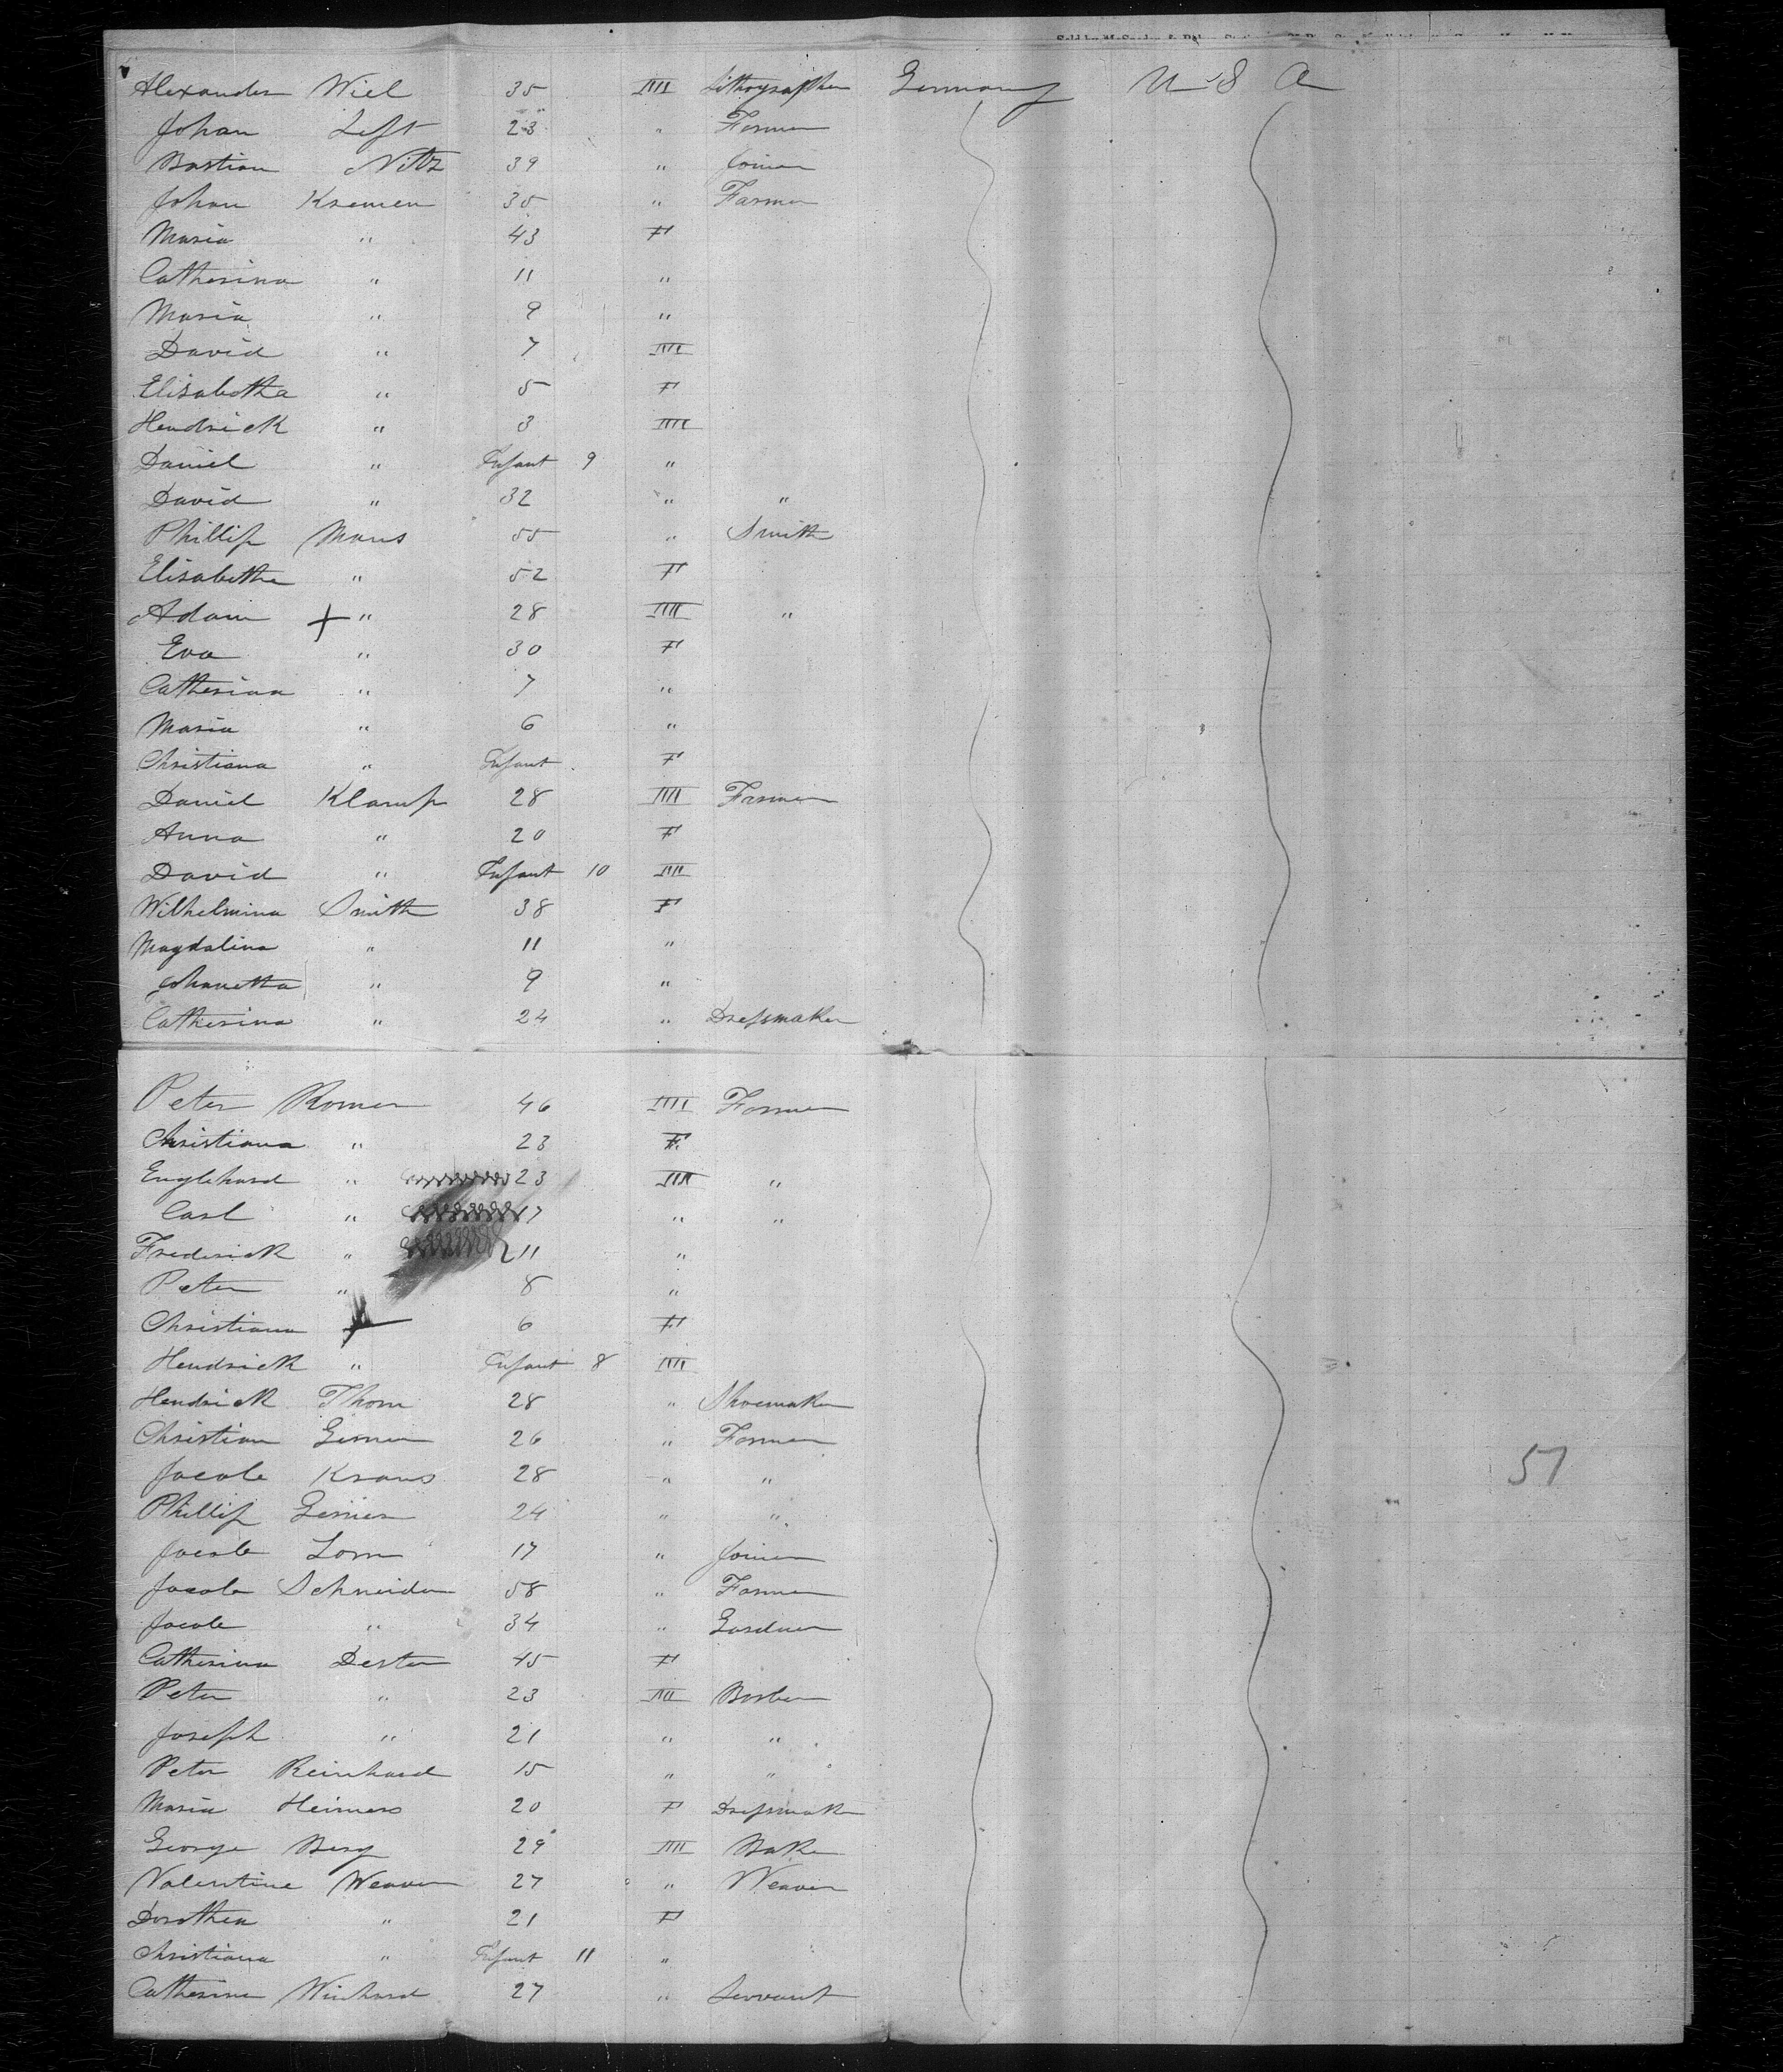 Alexander Wiel 35 M Lithographer Germany U S A
Johan Left 23 " Farmer
Bastian Niltz 39 " Joiner
Johan Kremer 35 " Farmer
Maria " 43 F
Catherina " 11 "
Maria " 9 "
David " 7 M
Elisabetha " 5 F
Hendrick " 3 M
Daniel " Infant 9 "
David " 32 " "
Phillip Maus 55 " Smith
Elisabetha " 52 F
Adam " 28 M "
Eva " 30 F
Catherina " 7 "
Maria " 6 "
Christiana " Infant F
Daniel Klamp 28 M Farmer
Anna " 20 F
David " Infant 10 M
Wilhelmina Smith 38 F
Magdalina " 11 "
Johanetta " 9 "
Catherina " 24 " Dressmaker
Peter Romer 46 M Farmer
Christiana " 23 F
Englehard " 23 M "
Carl " 17 " "
Frederick " 11 "
Peter " 8 "
Christiana 6 F
Hendrick " Infant 8 M
Hendrick Thom 28 " Shoemaker
Christian 26 " Farmer
Jacob Kraus 28 " "
Phillip 24 " "
Jacob Lorn 17 " Joiner
Jacob Schneider 58 " Farmer
Jacob " 34 " Gardner
Catherina Dester 45 F
Peter " 23 M Barber
Joseph " 21 " "
Peter Reinhard 15 " "
Maria Heimers 20 F Dressmaker
George Berg 29 M Baker
Valentine Weaver 27 " Weaver
Dorothea " 21 F
Christiana " Infant 11 "
Catherine Winhard 27 " Servant
51